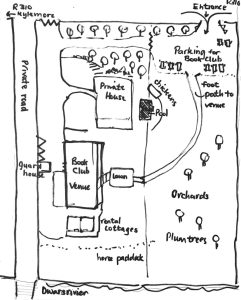 R310
Kylemore
R310
Entrance
Parking for
Book Club
Private
House
chickens
Pool
foot
path to
venue
Private road
guard
house
Book
Club
Venue
Lawn
Orchards
rental
cottages
Plumtrees
horse paddock
Dwarsrivier